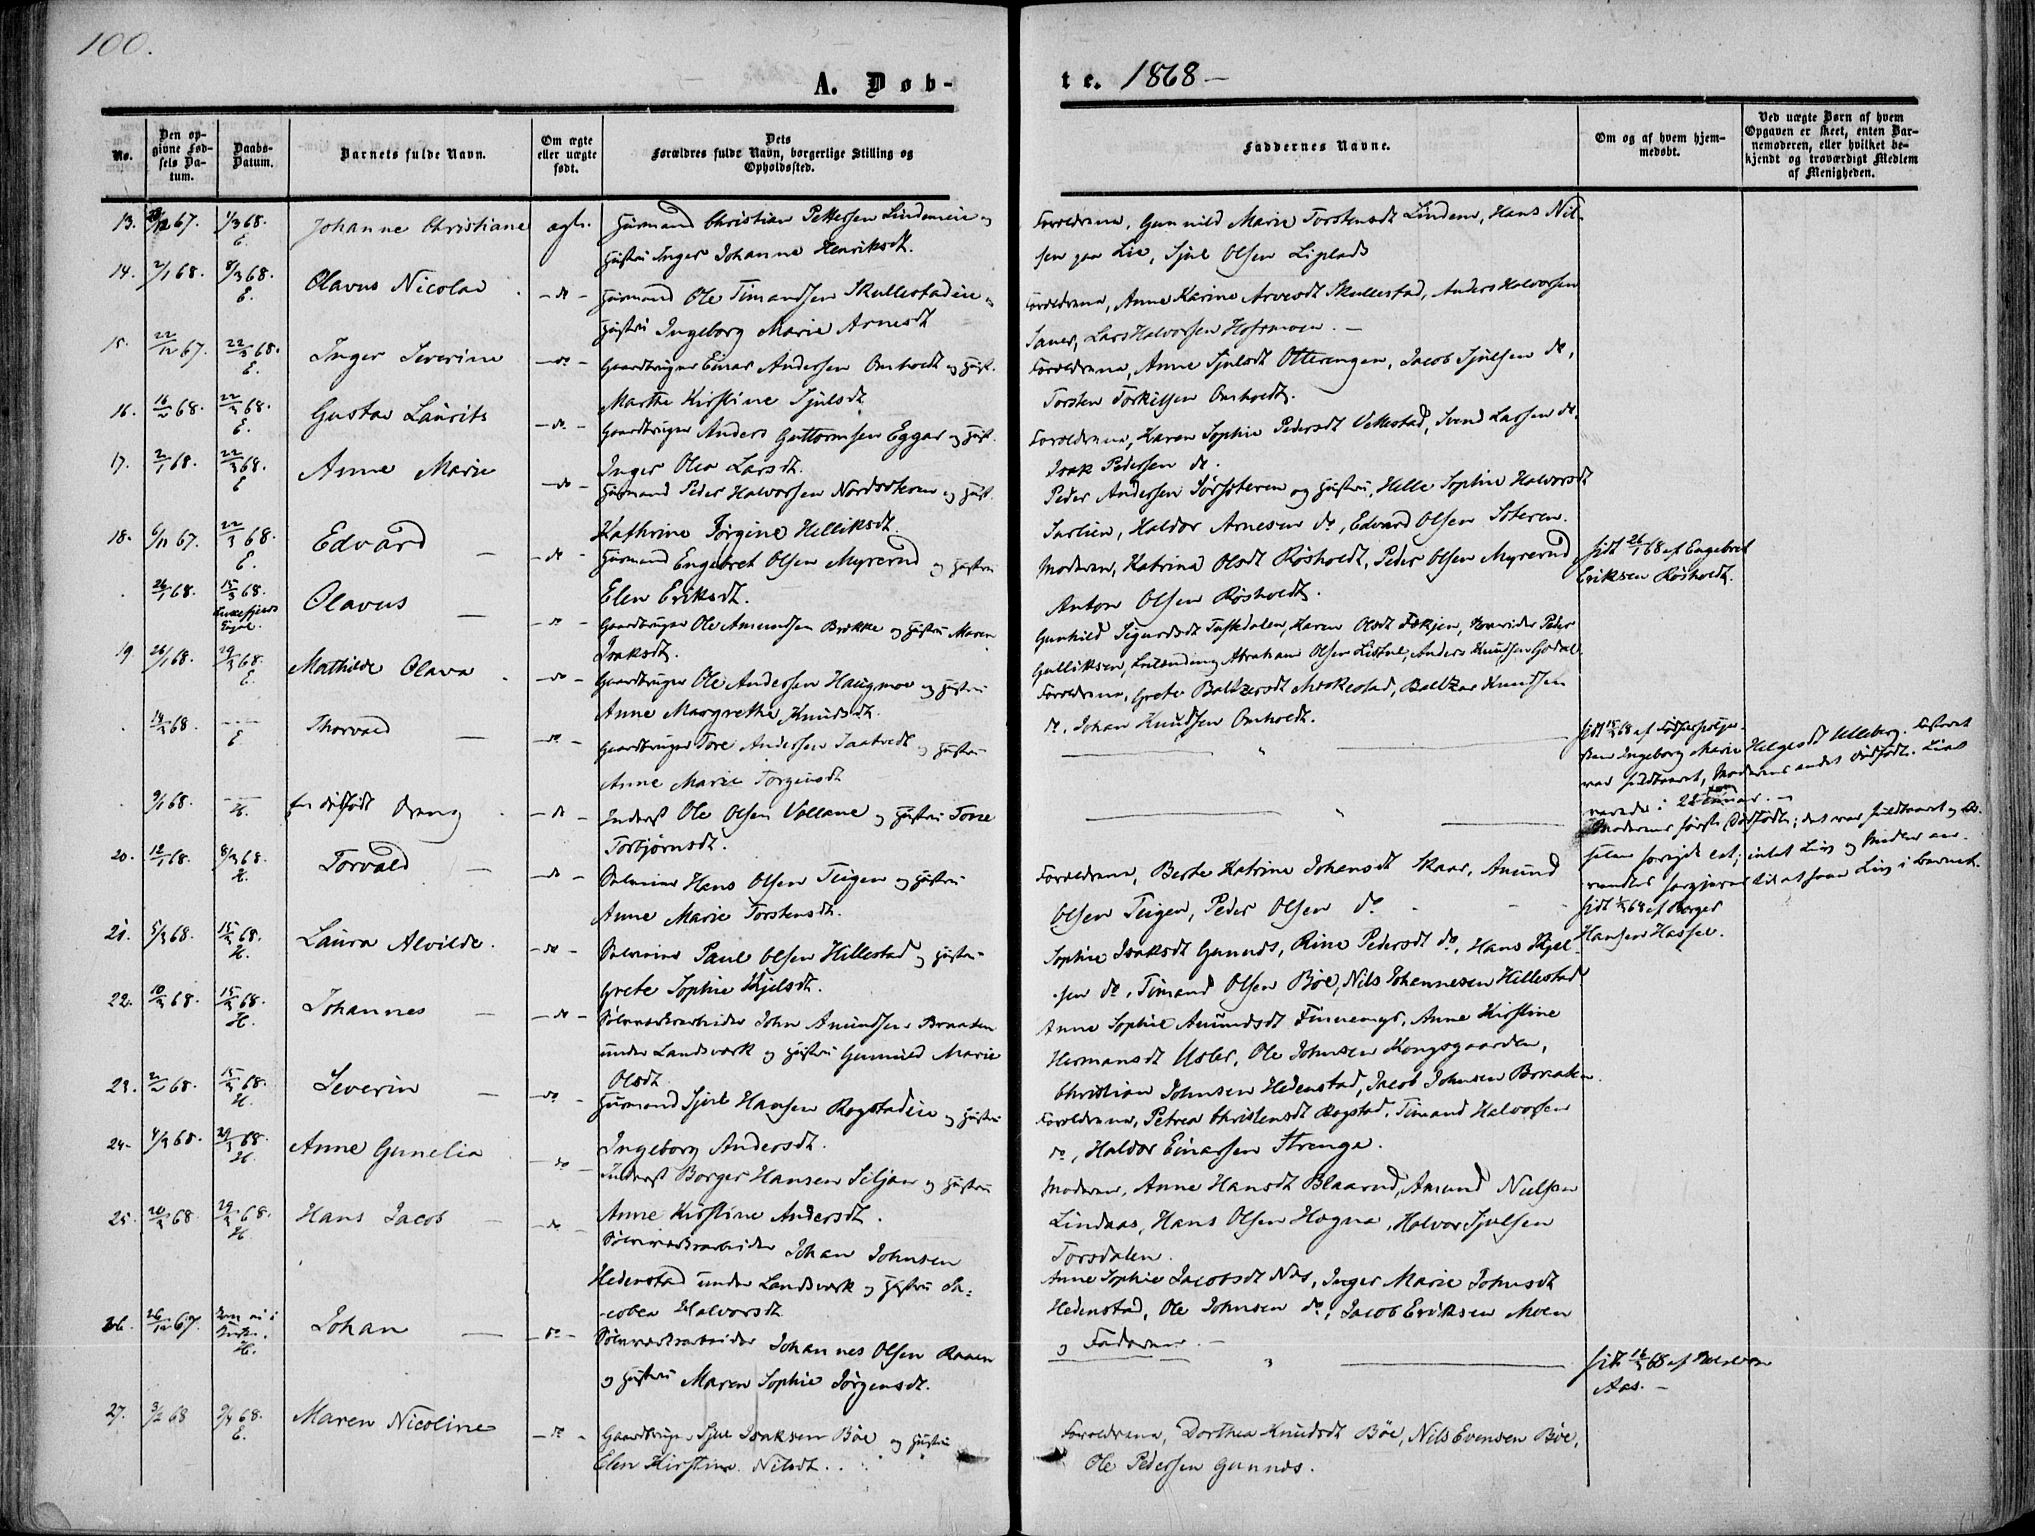 100.
A. Døb-
te. 1868 –
No.
Den op-
givne Fød-
sels Da-
tum.
Daabs-
Datum.
Barnets fulde Navn.
Om ægte
eller uægte
født.
Dets
Forældres fulde Navn, borgerlige Stilling og
Opholdssted.
Faddernes Navne.
Om og af hvem hjem-
medøbt.
Ved uægte Børn af hvem
Opgaven er skeet, enten Bar-
nemoderen, eller hvilket be-
kjendt og troværdigt Medlem
af Menigheden.
13. /12 67. 1/3 68. Johanne Christiane ægte. Huusmand Christian Pettersen Lindemeie og
E. Hustru Inger Johanne Henriksdt.
Forældrene, Gunnild Marie Torstensdt Lindem, Hans Nil-
sen paa Lie, Sjul Olsen Liplads
14. 2/1 68. 8/3 68. Olavus Nicolai – do – Huusmand Ole Timandsen Skullestadeie og
E. Hustru Ingeborg Marie Arnesdt
Forældrene, Anne Karine Arvesdt Skullestad, Anders Halvorsen
Saner, Lars Halvorsen Hofsmoen. –
15. 22/12 67. 22/3 68. Inger Severine – do – Gaardbruger Einar Andersen Omholdt og Hust.
E. Marthe Kirstine Sjulsdt
Forældrene, Anne Sjulsdt Otterengen, Jacob Sjulsen do,
Torsten Torkilsen Omholdt.
16. 16/ 68. 22/3 68. Gustav Laurits – do – Gaardbruger Anders Guttormsen Eggar og Hust.
E. Inger Olea Larsdt.
Forældrene, Karen Sophie Pedersdt Vellestad, Svend Larsen do.
Isak Pedersen do.
17. 2/1 68. 22/3 68. Anne Marie – do – Huusmand Peder Halvorsen Nordsteren og Hust.
E Kathrine Jørgine Helliksdt.
Peder Andersen Sørsteren og Hustru, Helle Sophie Halvorsdt
Sarlien, Haldor Arnesen do, Edvard Olsen Steren.
18. 6/11 67. 22/3 68. Edvard – – do – Huusmand Engebret Olsen Myrerud og Hustru
E. Elen Eriksdt.
Moderen, Katrina Olsdt Røsholdt, Peder Olsen Myrerud
Anton Olsen Røsholdt.
hjdt 26/1 68 af Engebret
Eriksen Røsholdt.
26/1 68. 15/3 68. Olavus – – do – Gaardbruger Ole Amundsen Brække og Hustru Maren
Isaksdt.
Gunhild Sigurdsdt Tuftedalen, Karen Olsdt Peder
Gulliksen, Abraham Olsen Anders Knudsen
19. 26/1 68. 29/3 68. Mathilde Olava – do – Gaardbruger Ole Andersen Haugmoe og Hustru
E. Anne Margrethe Knudsdt.
Forældrene, Grete Baltzersdt Baltzar Knudsen
do, Johan Knudsen Omholdt.
14/ 68. – – – Thorvald – – do – Gaardbruger Tore Andersen og Hustru
E. Anne Marie Torgeirsdt
hjdt 15/ 68 af
Ingeborg Marie Helgesdt Ulleberg.
var fuldbaaret, Moderens andet dødfødte. Livet
varede i
9/1 68. – – en dødfødt Dreng – do – Inderst Ole Olsen Vollane og Hustru Tone
H. Torbjørnsdt.
Moderens første Dødfødte; det var fuldbaaret og
intet Liv og
Liv i Barnet.
20. 12/1 68. 8/3 68. Torvald – – do – Hans Olsen Teigen og Hustru
H. Anne Marie Torstensdt.
Forældrene, Berte Katrine Johansdt Skaar, Amund
Olsen Teigen, Peder Olsen do
hjdt 68 af Borger
Hansen Hassel.
21. 5/3 68. 15/3 68. Laura Alvilde. – do – Paul Olsen Hillestad og Hustru
H. Grete Sophie Kjelsdt.
Sophie Isaksdt Gunnes, Rine Pedersdt do, Hans Kjel-
sen do, Timand Olsen Bøe, Nils Johannesen Hillestad
22. 10/ 68. 15/3 68. Johannes – – do – Sølvværksarbeider John Amundsen Braaten
H. under Landsværk og Hustru Gunnild Marie
Olsdt
Anne Sophie Amundsdt Finnemyr, Anne Kirstine
Hermansdt Ole Johnsen Kongsgaarden,
Christian Johnsen Hedenstad, Jacob Johnsen Braaten.
23. 2/ 68. 15/3 68. Severin – – do – Huusmand Sjul Hansen Rogstadeie og Hustru
H. Ingeborg Andersdt.
Forældrene, Petrea Christensdt Rogstad, Timand Halvorsen
do, Haldor Einarsen Strenge.
24. 4/3 68. 29/3 68. Anne Gunelia – do – Inderst Borger Hansen Siljan og Hustru
H. Anne Kirstine Andersdt.
Moderen, Anne Hansdt Blaarud, Amund Nielsen
Lindaas, Hans Olsen Hogna, Halvor Sjulsen
Torsdalen.
25. 20/ 68. 29/3 68. Hans Jacob – – do – Sølvværksarbeider Johan Johnsen
H. Hedenstad under Landsværk og Hustru Ja-
cobea Halvorsdt
Anne Sophie Jacobsdt Næs, Inger Marie Johnsdt
Hedenstad, Ole Johnsen do, Jacob Eriksen Moen
og Faderen –
26. 26/12 67. H. Johan – – do – Sølvværksarbeider Johannes Olsen Raaen
og Hustru Maren Sophie Jørgensdt.
hjdt 16/ 68 af
Aas. –
27. 3/2 68 3/4 68. Maren Nicoline – do – Gaardbruger Sjul Isaksen Bøe og Hustru
E. Elen Kirstine Nilsdt.
Forældrene, Dorthea Knudsdt Bøe, Nils Evensen Bøe,
Ole Pedersen Gunnes.